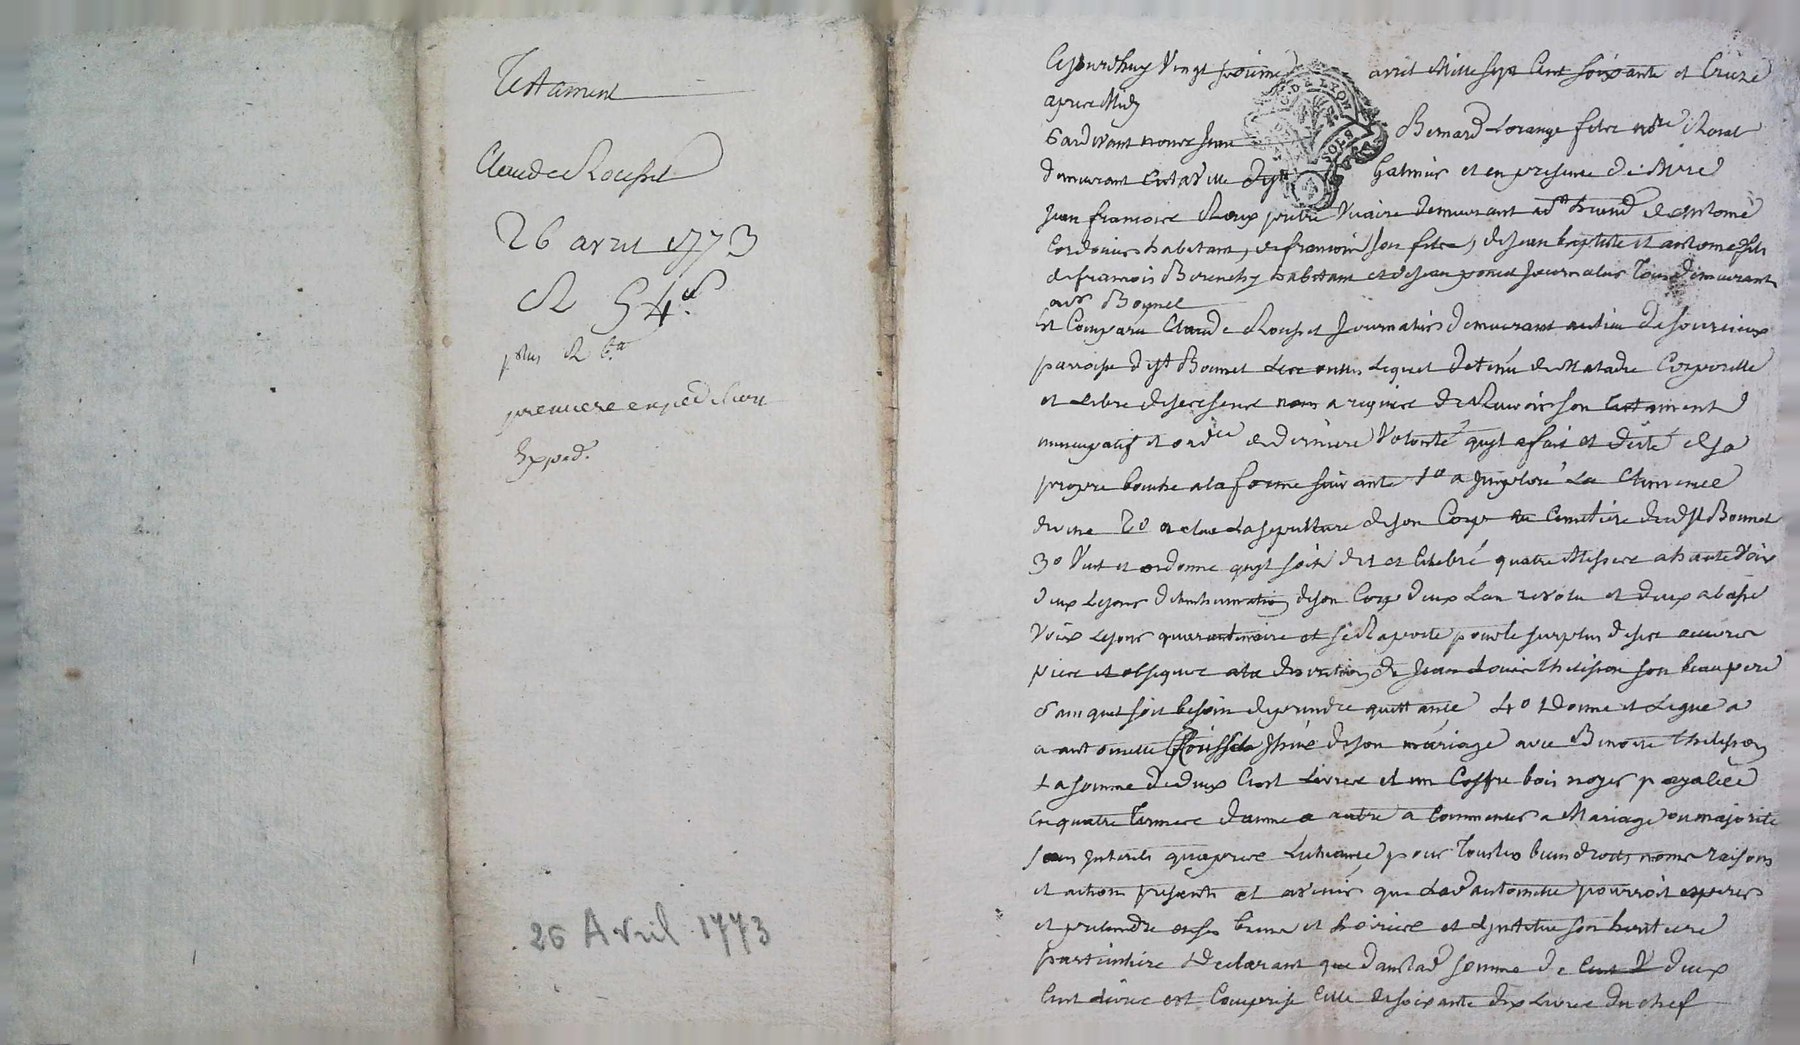 Testament
Claude Rousset
26 avril 1773
R 54s
plus R 6s
premiere expedition
Exped.
26 Avril 1773
G. DE LYON
SOLS
Cejourdhuy Vingt sixieme avril Mille sept Cent soixante et treize
apres Midy
Pardevant nous Jean Bernard Lorange fils nore Royal
demeurant en la Ville de St Galmier et en presence de Mre
Jean francois Roux pretre Vicaire demeurant
habitant, de francois son fils, de Jean baptiste et antoine fils
de francois habitant et de Jean Journalier Tous demeurant
Bonnet
Est Comparu Claude Rousset Journalier demeurant au lieu de
parroisse de St Bonnet Les oulles Lequel detenu de Maladie Corporelle
et Libre de ses sens nous a requis de Recevoir son testament
nuncupatif et ordce de derniere Volonté qu'yl a fait et dicté de sa
propre bouche a la forme suivante 1o a Jmploré La Clemence
divine 2o a elue La sepulture de son Corps au Cimetiere dud St Bonnet
3o Veut et ordonne qu'yl soit dit et Celebré quatre Messes a haute Voix
deux Le jour d'inhumation de son Corps deux L'an revolu et deux a basse
Voix Le jour quarantenaire et se Raporte pour le surplus de ses oeuvres
pies et obseques a la devotion de Jean Louis thelisson son beaupere
sans quil soit besoin de prendre quittance 4o Donne et Legue a
a antoinette Rousset de son mariage avec Benoite thelisson
La somme de deux Cent Livres et un Coffre bois noyer payable
en quatre Termes d'anné a autre a Commencer a Mariage ou majorité
sans Jnterets qu'apres L'echeance pour tous les biens droits noms raisons
et actions presents et avenir que Lad antoinette pourroit esperer
et pretendre en ses biens et hoiries et L'institue son heritiere
particuliere Declarant que dans lad somme de deux
Cent Livres est Comprise Celle de soixante dix Livres du chef